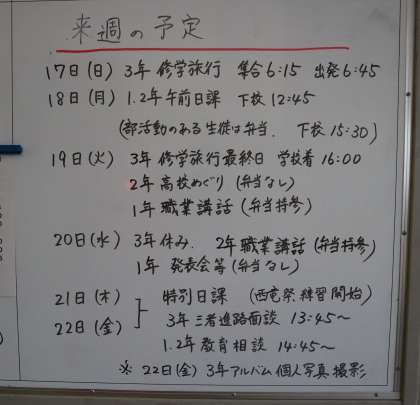 来週の予定
17日(日) 3年 修学旅行 集合6:15 出発6:45
18日(月) 1.2年午前日課 下校12:45
(部活動のある生徒は弁当. 下校15:30)
19日(火) 3年 修学旅行最終日 学校着16:00
2年 高校めぐり (弁当なし)
1年 職業講話 (弁当持参)
20日(水) 3年休み. 2年職業講話(弁当持参)
1年 発表会等(弁当なし)
21日(木) 特別日課 (西竜祭練習開始)
22日(金) 3年三者進路面談 13:45〜
1.2年教育相談 14:45〜
※ 22日(金) 3年アルバム個人写真撮影